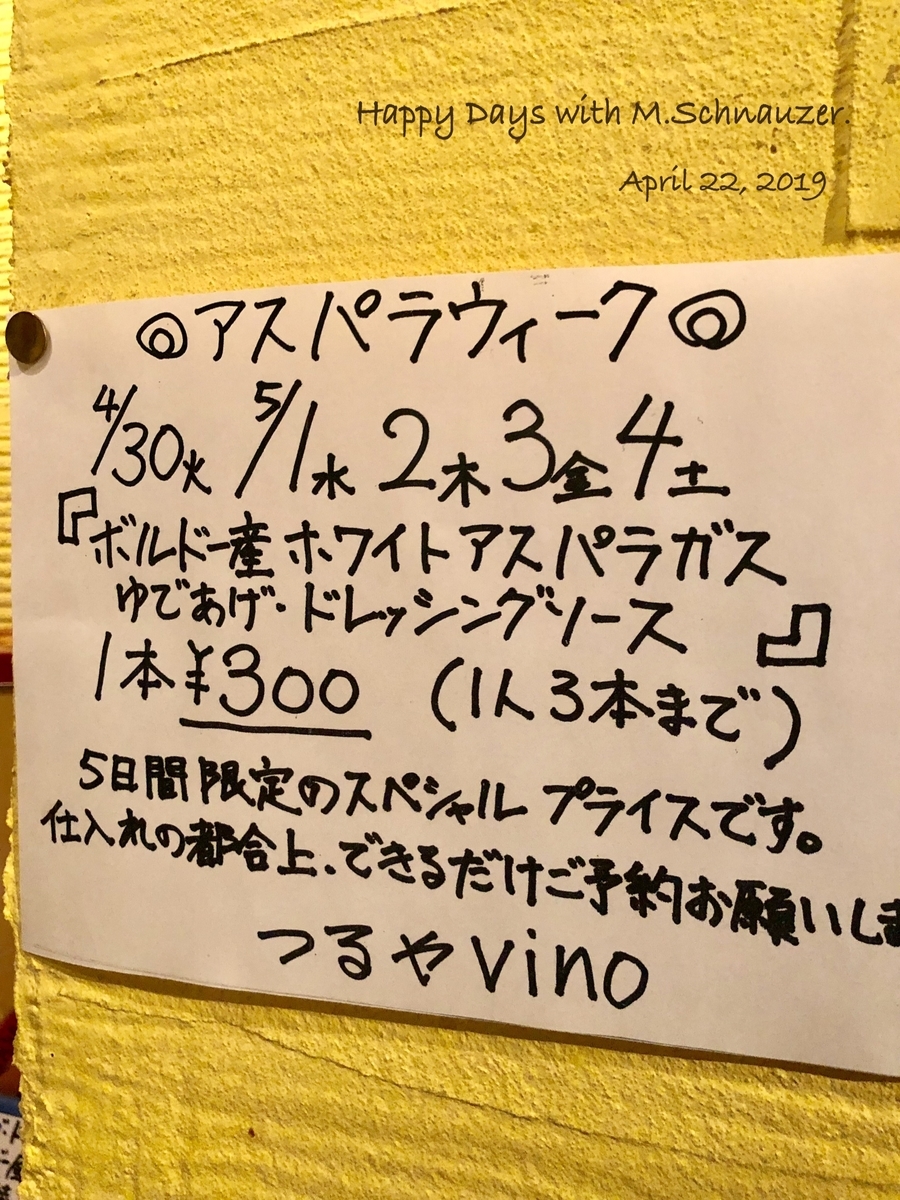 Happy Days with M.Schnauzer.
April 22, 2019
◎アスパラウィーク◎
4/30火 5/1水 2木 3金 4土
『ボルドー産 ホワイトアスパラガス
ゆであげ・ドレッシングソース』
1本¥300 (1人3本まで)
5日間限定のスペシャルプライスです。
仕入れの都合上、できるだけご予約お願いしま
つるやvino